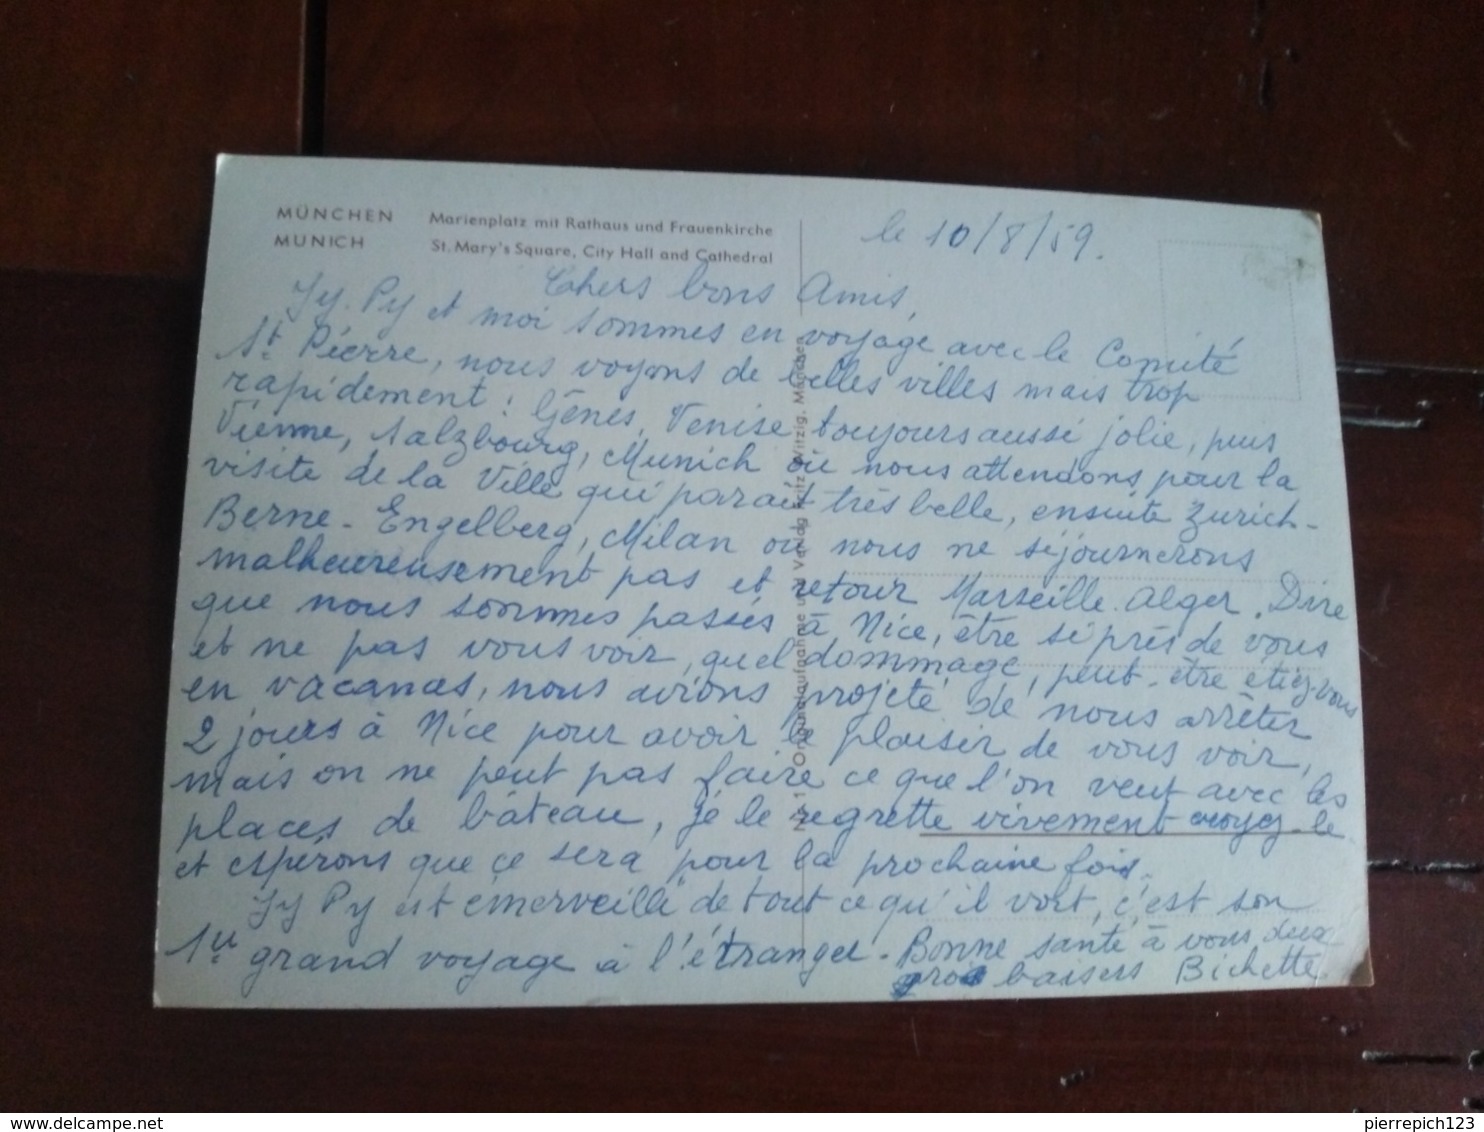 MÜNCHEN Marienplatz mit Rathaus und Frauenkirche
MUNICH St. Mary's Square, City Hall and Cathedral
le 10/8/59.
Chers bons Amis,
Jy. Py et moi sommes en voyage avec le Comité
St. Pierre, nous voyons de belles villes mais trop
rapidement : Gênes, Venise toujours aussi jolie, puis
Vienne, Salzbourg, Munich où nous attendons pour la
visite de la Ville qui parait très belle, ensuite Zurich -
Berne - Engelberg, Milan où nous ne séjournerons
malheureusement pas et retour Marseille. Alger. Dire
que nous sommes passés à Nice, être si près de vous
et ne pas vous voir, quel dommage, peut-être étiez-vous
en vacances, nous avions projeté de nous arrêter
2 jours à Nice pour avoir le plaisir de vous voir,
mais on ne peut pas faire ce que l'on veut avec les
places de bâteau, je le regrette vivement croyez-le
et espérons que ce sera pour la prochaine fois.
Jy Py est émerveillé de tout ce qu'il voit, c'est son
1er grand voyage à l'étranger. Bonne santé à vous deux
gros baisers Bichette.
Originalaufnahme und Verlag Fritz Witzig, München
pierrepich123